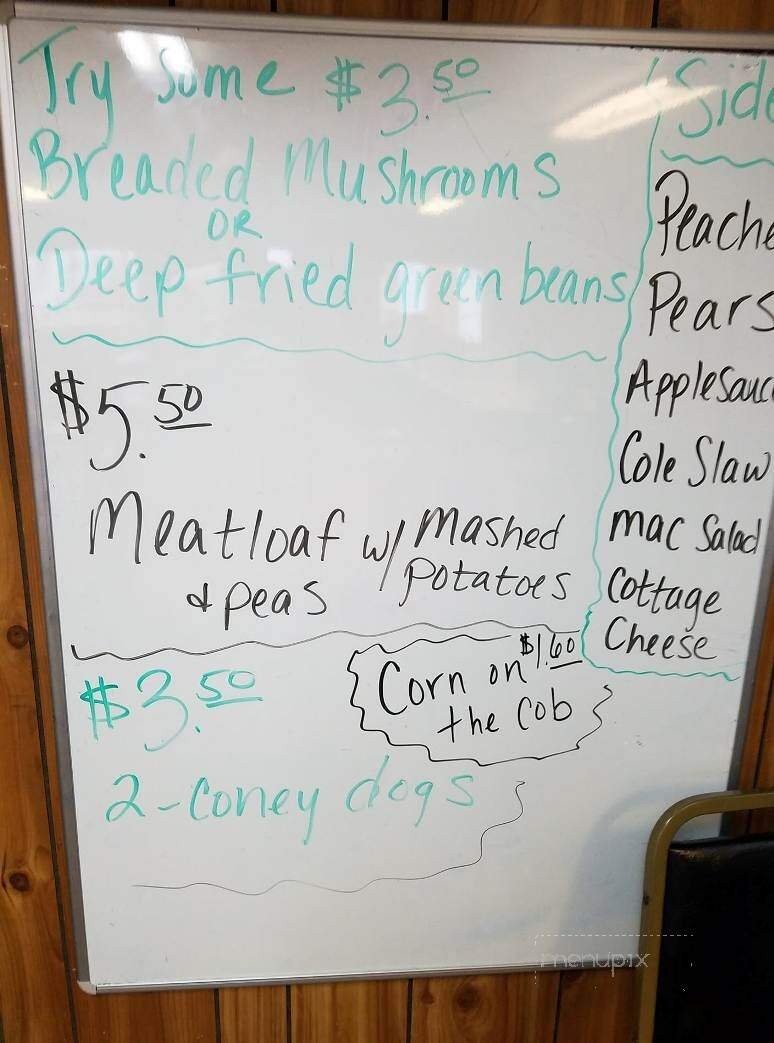 Try Some $3.50
Breaded Mushrooms
OR
Deep fried green beans
$5.50
Meatloaf w/ Mashed
potatoes
& peas
$3.50
2-Coney dogs
$1.60
Corn on
the Cob
Side
Peache
Pears
Applesauc
Cole Slaw
Mac Salad
Cottage
Cheese
menupix